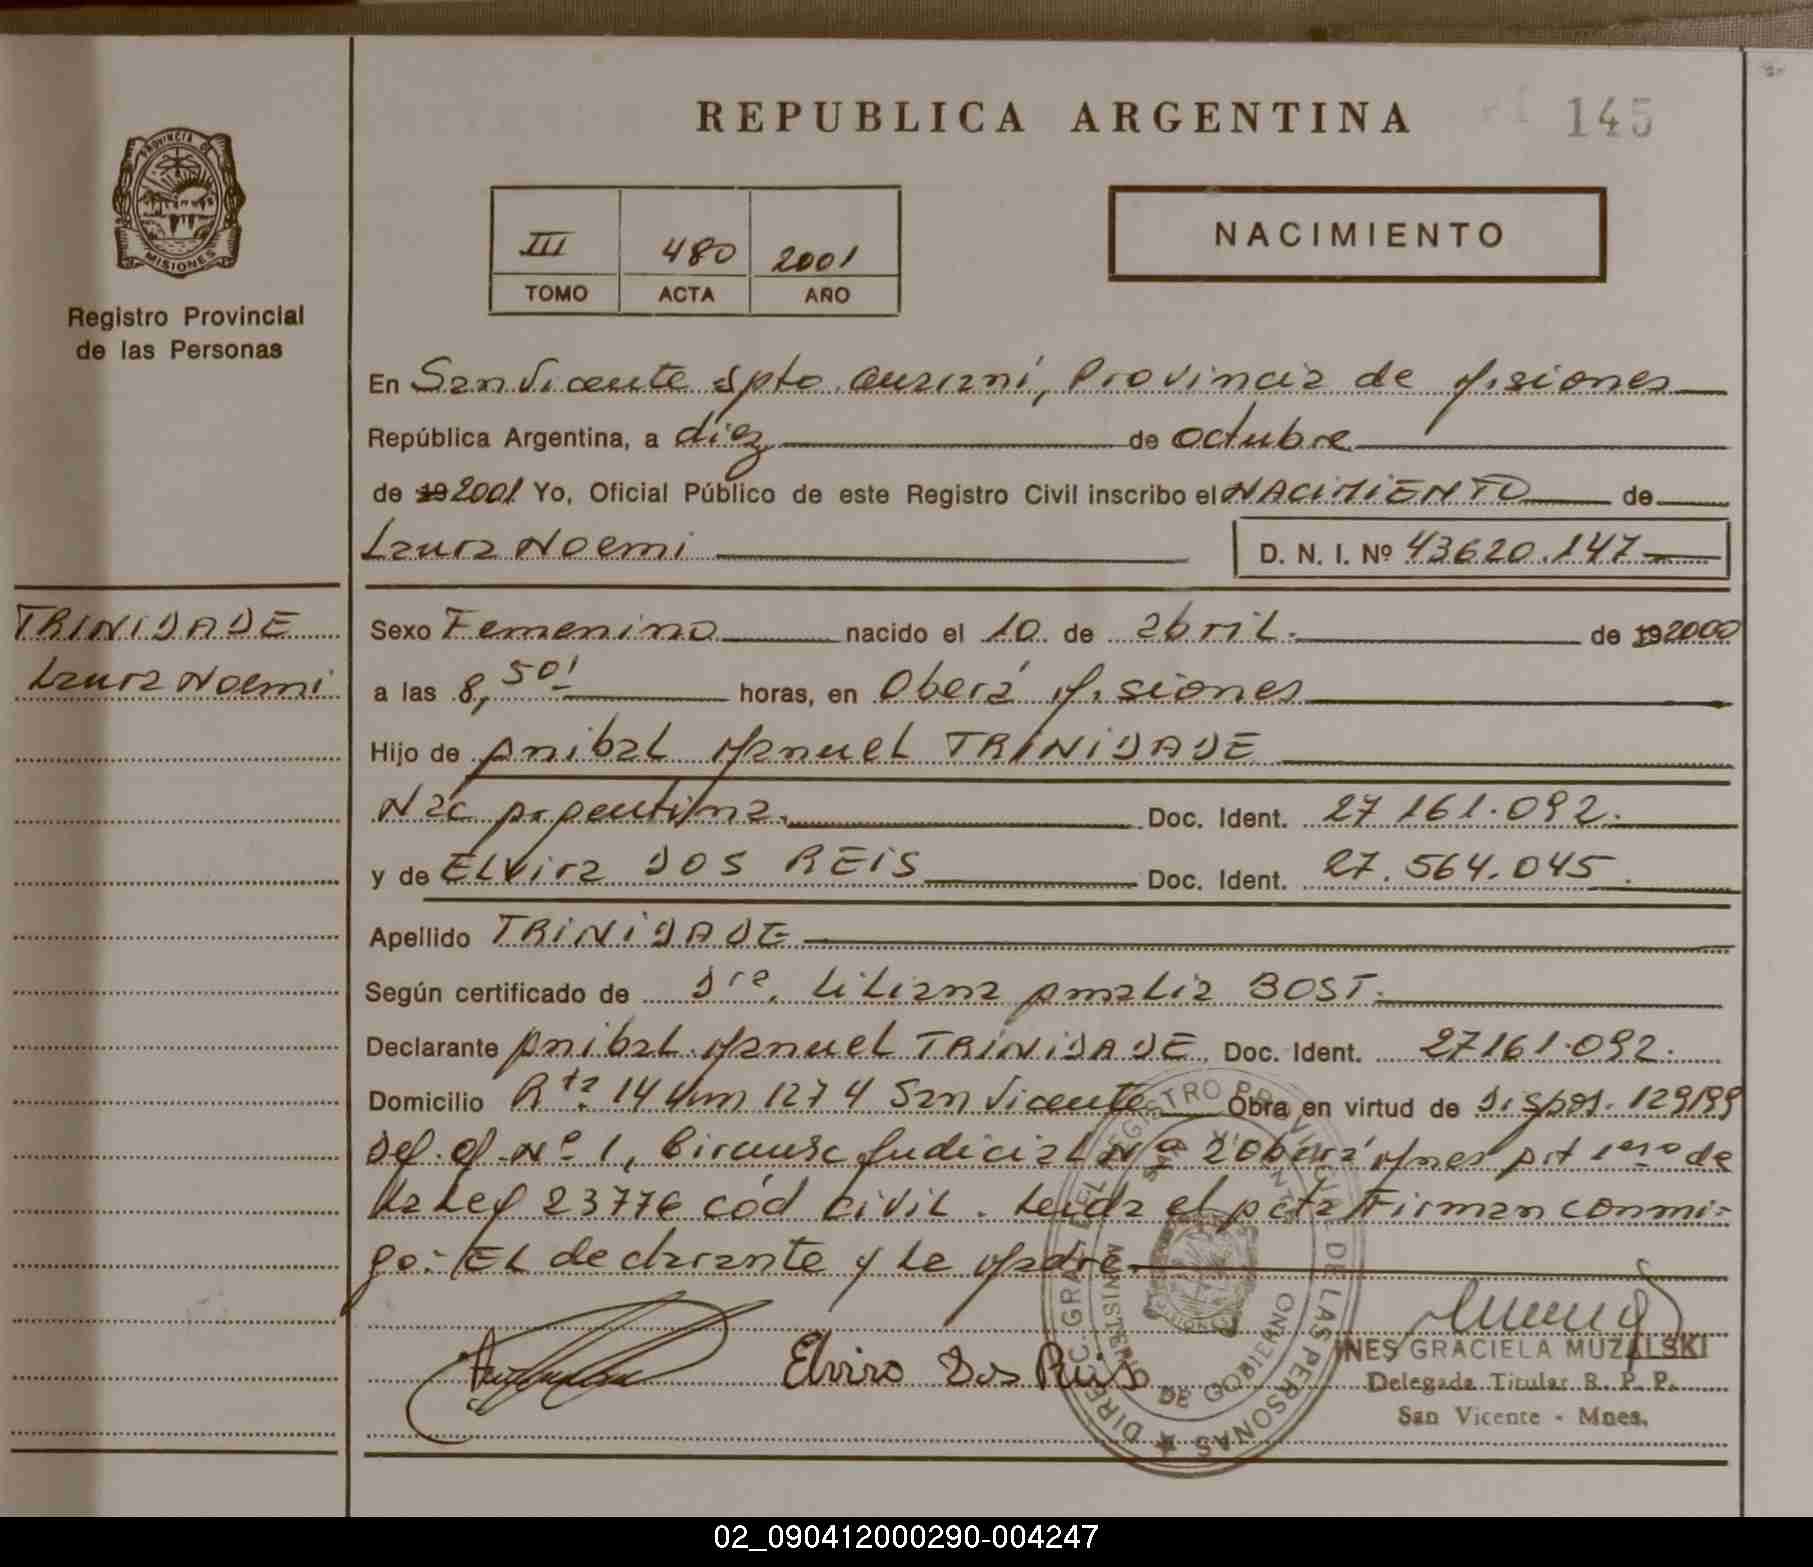 REPUBLICA ARGENTINA
145
PROVINCIA DE
MISIONES
Registro Provincial
de las Personas
III 480 2001
TOMO ACTA AÑO
NACIMIENTO
En San Vicente Dpto. Guaraní, Provincia de Misiones
República Argentina, a diez de octubre
de 19 2001 Yo, Oficial Público de este Registro Civil inscribo el NACIMIENTO de
Laura Noemi
D. N. I. Nº 43620.147
TRINIDADE
Laura Noemi
Sexo Femenino nacido el 10 de abril. de 19 2000
a las 8,50' horas, en Oberá Misiones
Hijo de Anibal Manuel TRINIDADE
Nac Argentina. Doc. Ident. 27 161.092.
y de ELvira DOS REIS Doc. Ident. 27.564.045.
Apellido TRINIDADE
Según certificado de Dra. Liliana Amalia BOST.
Declarante Anibal Manuel TRINIDADE Doc. Ident. 27161.092.
Domicilio Rta 14 Km 1274 San Vicente Obra en virtud de Dispos. 129/99
Def. Of. Nº 1, Circunsc Judicial Nº 2 Oberá Mnes Art 1ero de
la Ley 23776 cód civil. Leida el Acta Firman conmi-
go: EL declarante y la Madre
Elviro Dos Reis
INES GRACIELA MUZALSKI
Delegada Titular R. P. P.
San Vicente - Mnes.
DIREC. GRAL. DEL REGISTRO PROVINCIAL DE LAS PERSONAS
SAN VICENTE
MINISTERIO DE GOBIERNO
02_090412000290-004247